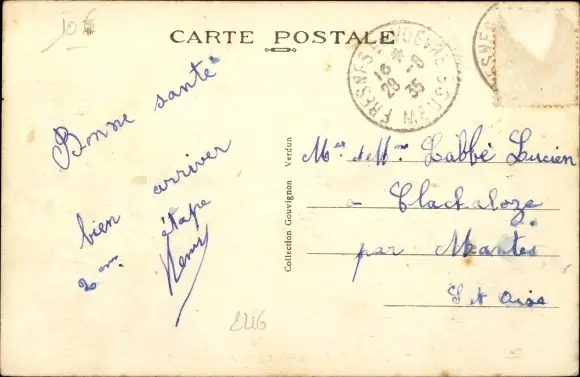 10€
CARTE POSTALE
FRESNES EN WOEVRE
MEUSE
16 -9
28 35
Bonne santé
bien arriver
2em étape
Remy
Collection Gouvignon Verdun
Mer et Mme Labbé Lucien
a Clachaloze
par Mantes
St Oise
2216